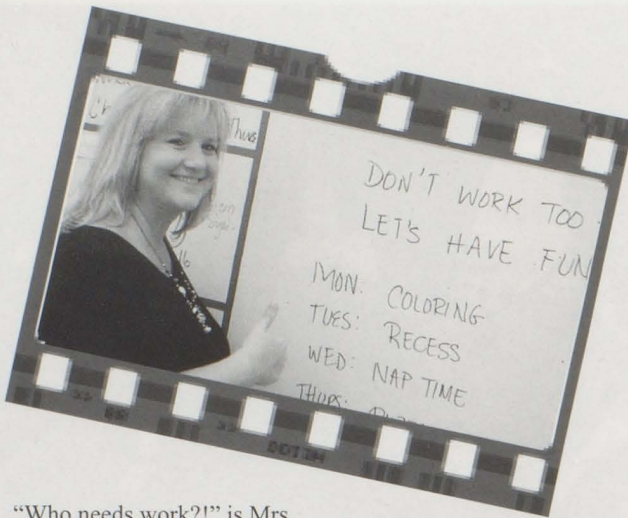 Thurs
DON'T WORK TOO
LET'S HAVE FUN
MON: COLORING
TUES: RECESS
WED: NAP TIME
THURS:
"Who needs work?!" is Mrs.